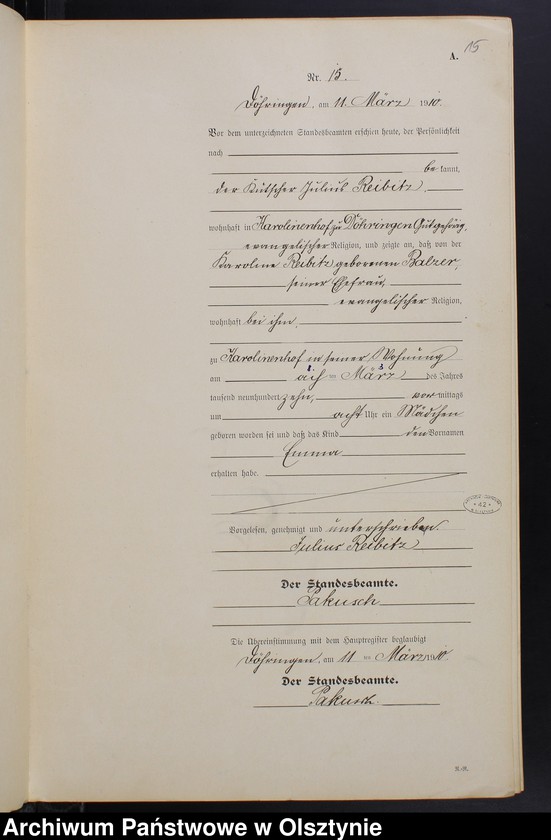 15
A.
Nr. 15.
Döhringen, am 11. März 1910.
Vor dem unterzeichneten Standesbeamten erschien heute, der Persönlichkeit
nach
be kannt,
der Kutscher Julius Reibitz,
wohnhaft in Karolinenhof zu Döhringen Gut gehörig,
evangelischer Religion, und zeigte an, daß von der
Karoline Reibitz geborenen Balzer,
seiner Ehefrau,
evangelischer Religion,
wohnhaft bei ihm,
zu Karolinenhof in seiner Wohnung
am März des Jahres
tausend neunhundert zehn, vor mittags
um acht Uhr ein Mädchen
geboren worden sei und daß das Kind den Vornamen
Emma
erhalten habe.
Vorgelesen, genehmigt und unterschrieben.
Julius Reibitz
Der Standesbeamte.
Pakusch
Die Übereinstimmung mit dem Hauptregister beglaubigt
Döhringen, am 11 ten März 1910.
Der Standesbeamte.
Pakusch.
Archiwum Państwowe w Olsztynie